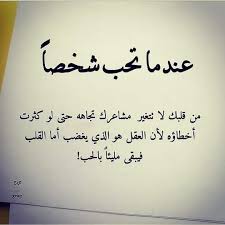 عندما تحب شخصاً
من قلبك لا تتغير مشاعرك تجاهه حتى لو كثرت
أخطاؤه لأن العقل هو الذي يغضب أما القلب
فيبقى مليئاً بالحب!